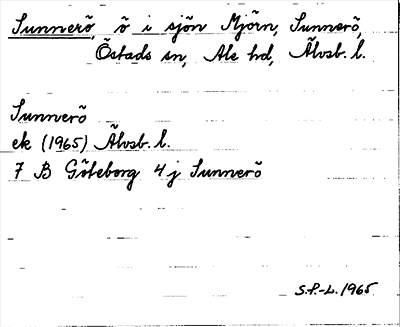 Sunnerö, ö i sjön Mjörn, Sunnerö,
Östads sn, Ale hd, Älvsb. l.
Sunnerö
ek (1965) Älvsb. l.
7 B Göteborg 4 j Sunnerö
S.P.-L. 1965